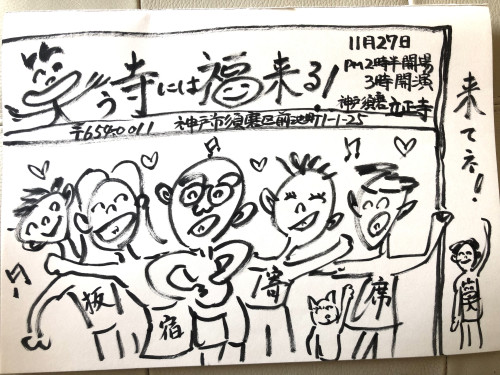 笑う寺には福来る!
11月27日
PM2時半開場
3時開演
神戸須磨 立正寺
〒654-0011 神戸市須磨区前池町1-1-25
来てネ!
板
宿
寄
席
笑